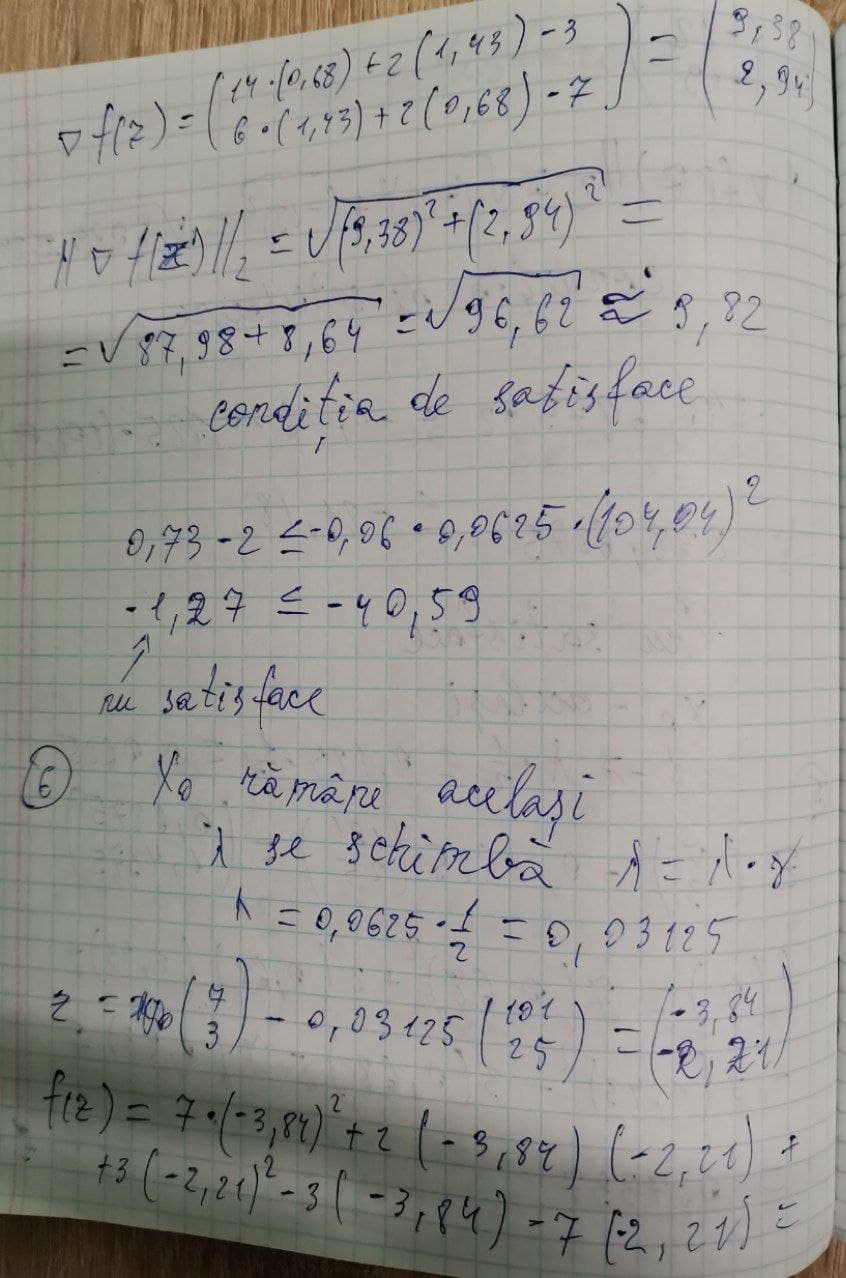 ∇f(z) = (14·(0,68) + 2(1,43) - 3
6·(1,43) + 2(0,68) - 7) = (9,38
2,94)
||∇f(z)||₂ = √(9,38)² + (2,94)² =
= √87,98 + 8,64 = √96,62 ≈ 9,82
condiția de satisface
0,73 - 2 ≤ -0,06 · 0,0625 · (104,04)²
-1,27 ≤ -40,59
↑
nu satisface
⑥ X₀ rămâne același
λ se schimbă λ = λ · γ
λ = 0,0625 · 1/2 = 0,03125
z = (7
3) - 0,03125 (101
25) = (-3,84
-2,21)
f(z) = 7·(-3,84)² + 2 (-3,84) (-2,21) +
+3 (-2,21)² - 3 (-3,84) - 7 (-2,21) =